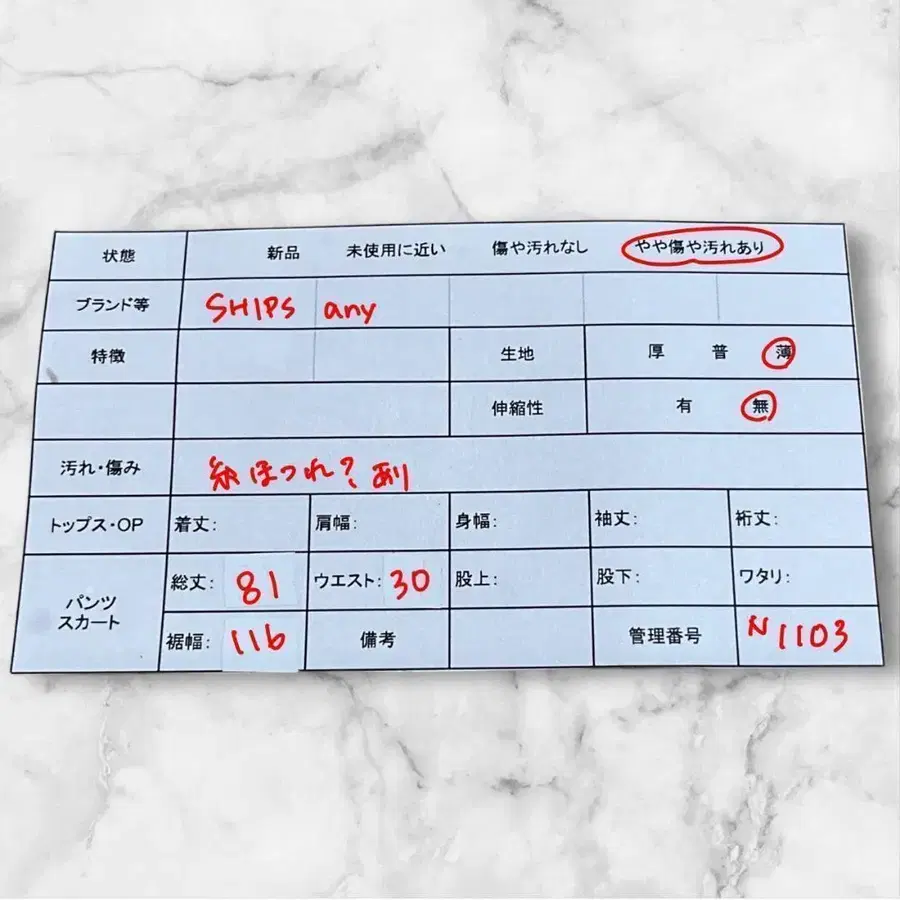 状態 新品 未使用に近い 傷や汚れなし やや傷や汚れあり
ブランド等 SHIPS any
特徴 生地 厚 普 薄
伸縮性 有 無
汚れ・傷み 糸ほつれ?あり
トップス・OP 着丈: 肩幅: 身幅: 袖丈: 裄丈:
パンツ スカート 総丈: 81 ウエスト: 30 股上: 股下: ワタリ:
裾幅: 116 備考 管理番号 N1103